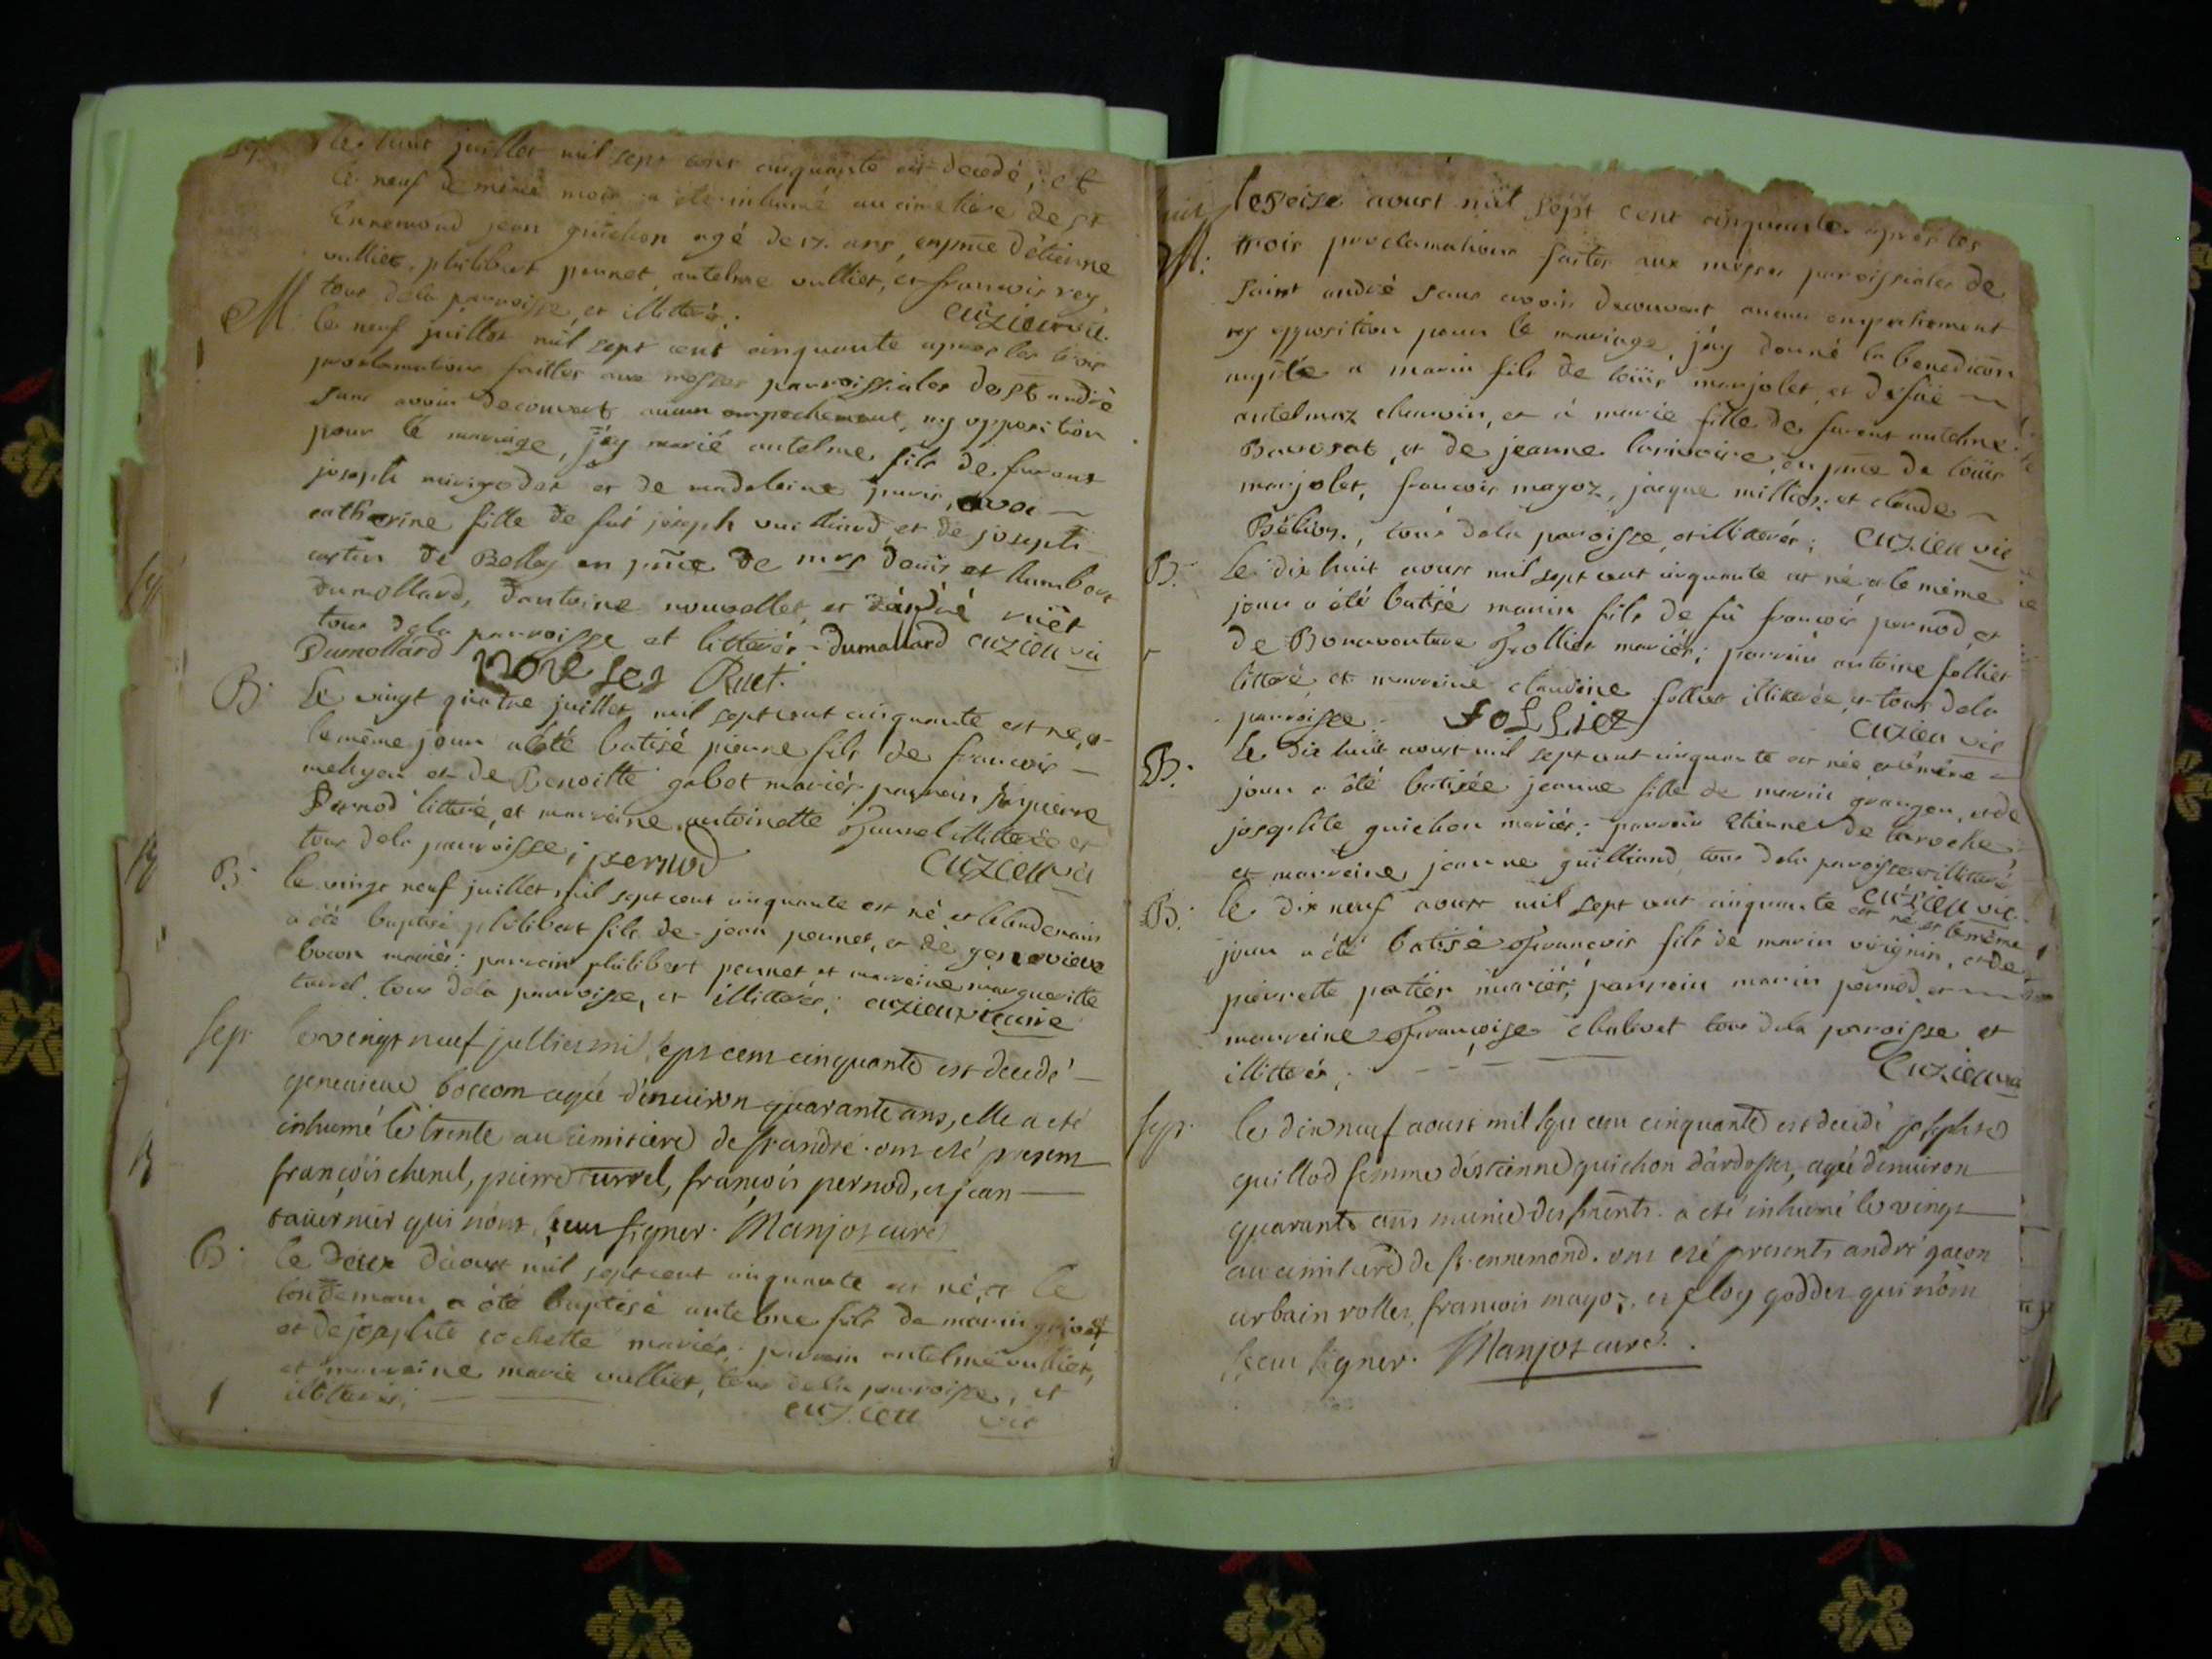 sep. le huit juillet mil sept cent cinquante est decedé, et
le neuf de même mois a été inhumé au cimetiere de st
Ennemond jean guichon agé de ans, en pnce d'étienne
vulliet, philibert pernet, antelme vulliet, et francois rey,
tous dela parroisse, et illitterés. cuzieu vic.
M. le neuf juillet mil sept cent cinquante apres les trois
proclamations faittes aux messes parroissiales de st andré
sans avoir decouvert aucun empechement, ny opposition
pour le mariage, j'ay marié antelme fils de furent
joseph et de madeleine avec
catherine fille de fut joseph vuilliaud et de joseph
de Belley en pnce de mrs denis et humbert
dumollard, d'antoine nouvellet, et d'andré ruët
tous dela parroisse et litterés. dumollard cuzieu vic
Dumollard Ruet.
B. Le vingt quatre juillet mil sept cent cinquante est né, et
le même jour a été batisé pierre fils de francois
et de Benoitte gabet mariés, parrain sr pierre
Pernod litteré, et marraine antoinette illiterée et
tous dela parroisse; pernod cuzieu vic
B. le vingt neuf juillet mil sept cent cinquante est né et le lendemain
a été baptisé philibert fils de jean pernet, et de genevieve
bocon mariés: parrain philibert pernet, et marraine margueritte
turrel tous dela parroisse, et illitterés; cuzieu vicaire
sep. le vingt neuf jullies mil sept cens cinquante est decedé
genevieve boccom agée d'enuiron quarante ans, elle a eté
inhumé le trente au cimitiere de st andré. ont eté presens
françois chenel, pierre turrel, françois pernod, et jean
tauernier qui n'ont sceu signer. Manjot curé
B. le deux d'aoust mil sept cent cinquante est né, et le
lendemain a été baptisé antelme fils de marin
et de josephte cochette mariés; parrain antelme vulliet,
et marraine marie vulliet, tous dela parroisse, et
illitterés; cuzieu vic
le seize aoust mil sept cent cinquante apres les
M. trois proclamations faites aux messes paroissiales de
saint andré sans avoir decouvert aucun empechement
ny opposition pour le mariage, j'ay donné la benediction
nuptle a marin fils de loüis marjolet, et de füe
antelmaz charvin, et à marie fille de furent antelme
Bavosat, et de jeanne larivoire, en pnce de loüis
marjolet, francois magoz, jacque millioz, et claude
tous dela paroisse, et illitterés; cuzieu vic
B. Le dix huit aoust mil sept cent cinquante est né et le même
jour a été batisé marin fils de fü francois pernod, et
de Bonaventure Follier mariés; parrain antoine follier
litteré et marraine claudine follier illiterée, et tous dela
parroisse. Folliez cuzieu vic
B. Le dix huit aoust mil sept cent cinquante est née et le même
jour a été batisée jeanne fille de marin grangeon, et de
josephte guichon mariés; parrain etienne de laroche,
et marraine jeanne guilliand, tous dela paroisse et illitterés
cuzieu vic
B. Le dix neuf aoust mil sept cent cinquante est né et le même
jour a été batisé Francois fils de marin virignin, et de
pierrette patier mariés; parrain marin pernod, et
marraine Françoise chalivet tous dela paroisse et
illitterés; cuzieu vic
sep. le dix neuf aoust mil sept cens cinquante est decedé josephte
guillod femme d'estienne guichon d'ardosset, agée d'enuiron
quarante ans munie des sments. a eté inhumé le vingt
au cimitierd de st ennemond. ont eté presents andré gacon
urbain rollet, francois mayoz, et eloy goddet qui n'ont
sceu signer. Manjot curé.